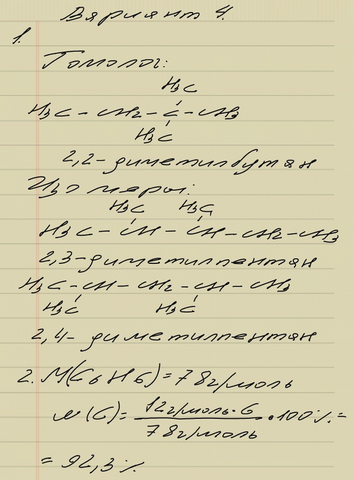 Вариант 4.
1.
Гомолог:
H₃C
H₃C – CH₂ – C – CH₃
H₃C
2,2-диметилбутан
Изомеры:
H₃C H₃C
H₃C – CH – CH – CH₂ – CH₃
2,3-диметилпентан
H₃C – CH – CH₂ – CH – CH₃
H₃C H₃C
2,4-диметилпентан
2. M(C₆H₆) = 78г/моль
w(C) = 12г/моль·6 / 78г/моль · 100% =
= 92,3%